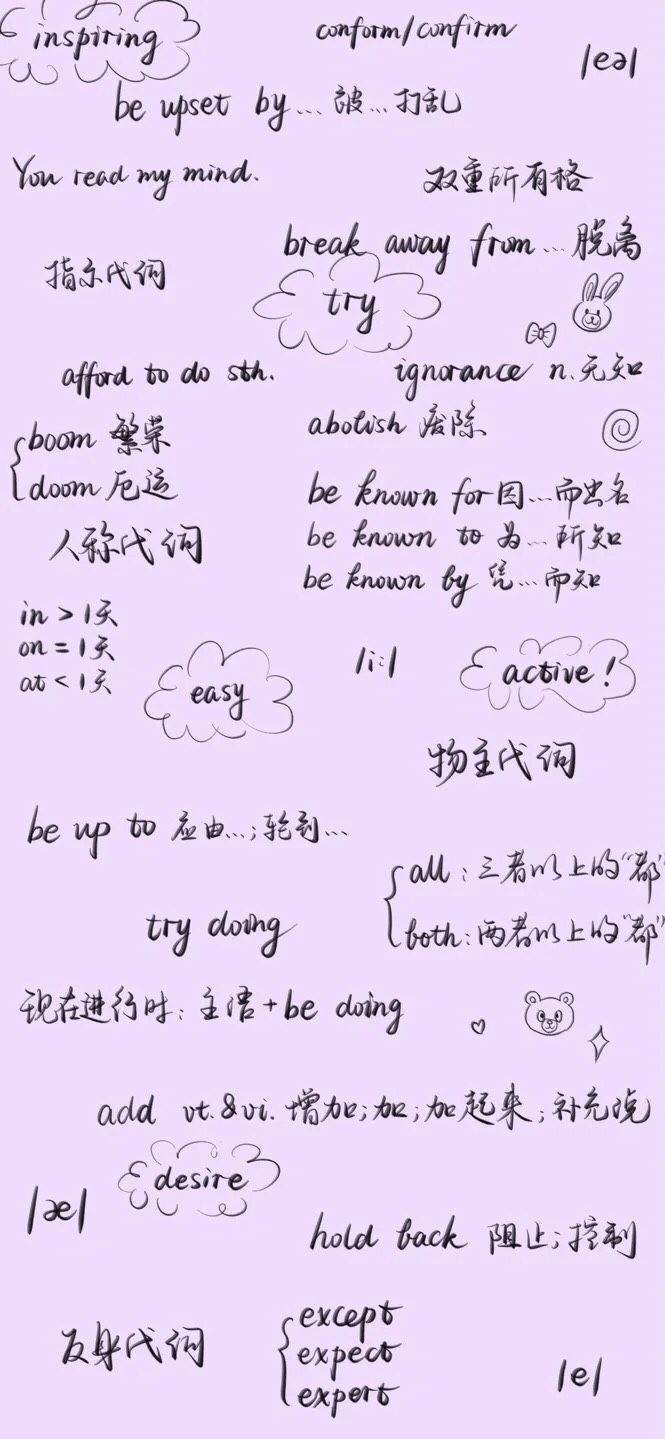 inspiring
conform/confirm
/eə/
be upset by... 被...打乱
You read my mind.
双重所有格
break away from...脱离
指示代词
try
afford to do sth.
ignorance n.无知
boom 繁荣
doom 厄运
abolish 废除
be known for 因...而出名
be known to 为...所知
be known by 凭...而知
人称代词
in > 1天
on = 1天
at < 1天
easy
/i:/
active!
物主代词
be up to 应由...;轮到...
all:三者以上的"都"
both:两者以上的"都"
try doing
现在进行时:主语+be doing
add vt.&vi.增加;加;加起来;补充说
desire
/æ/
hold back 阻止;控制
反身代词
except
expect
expert
/e/